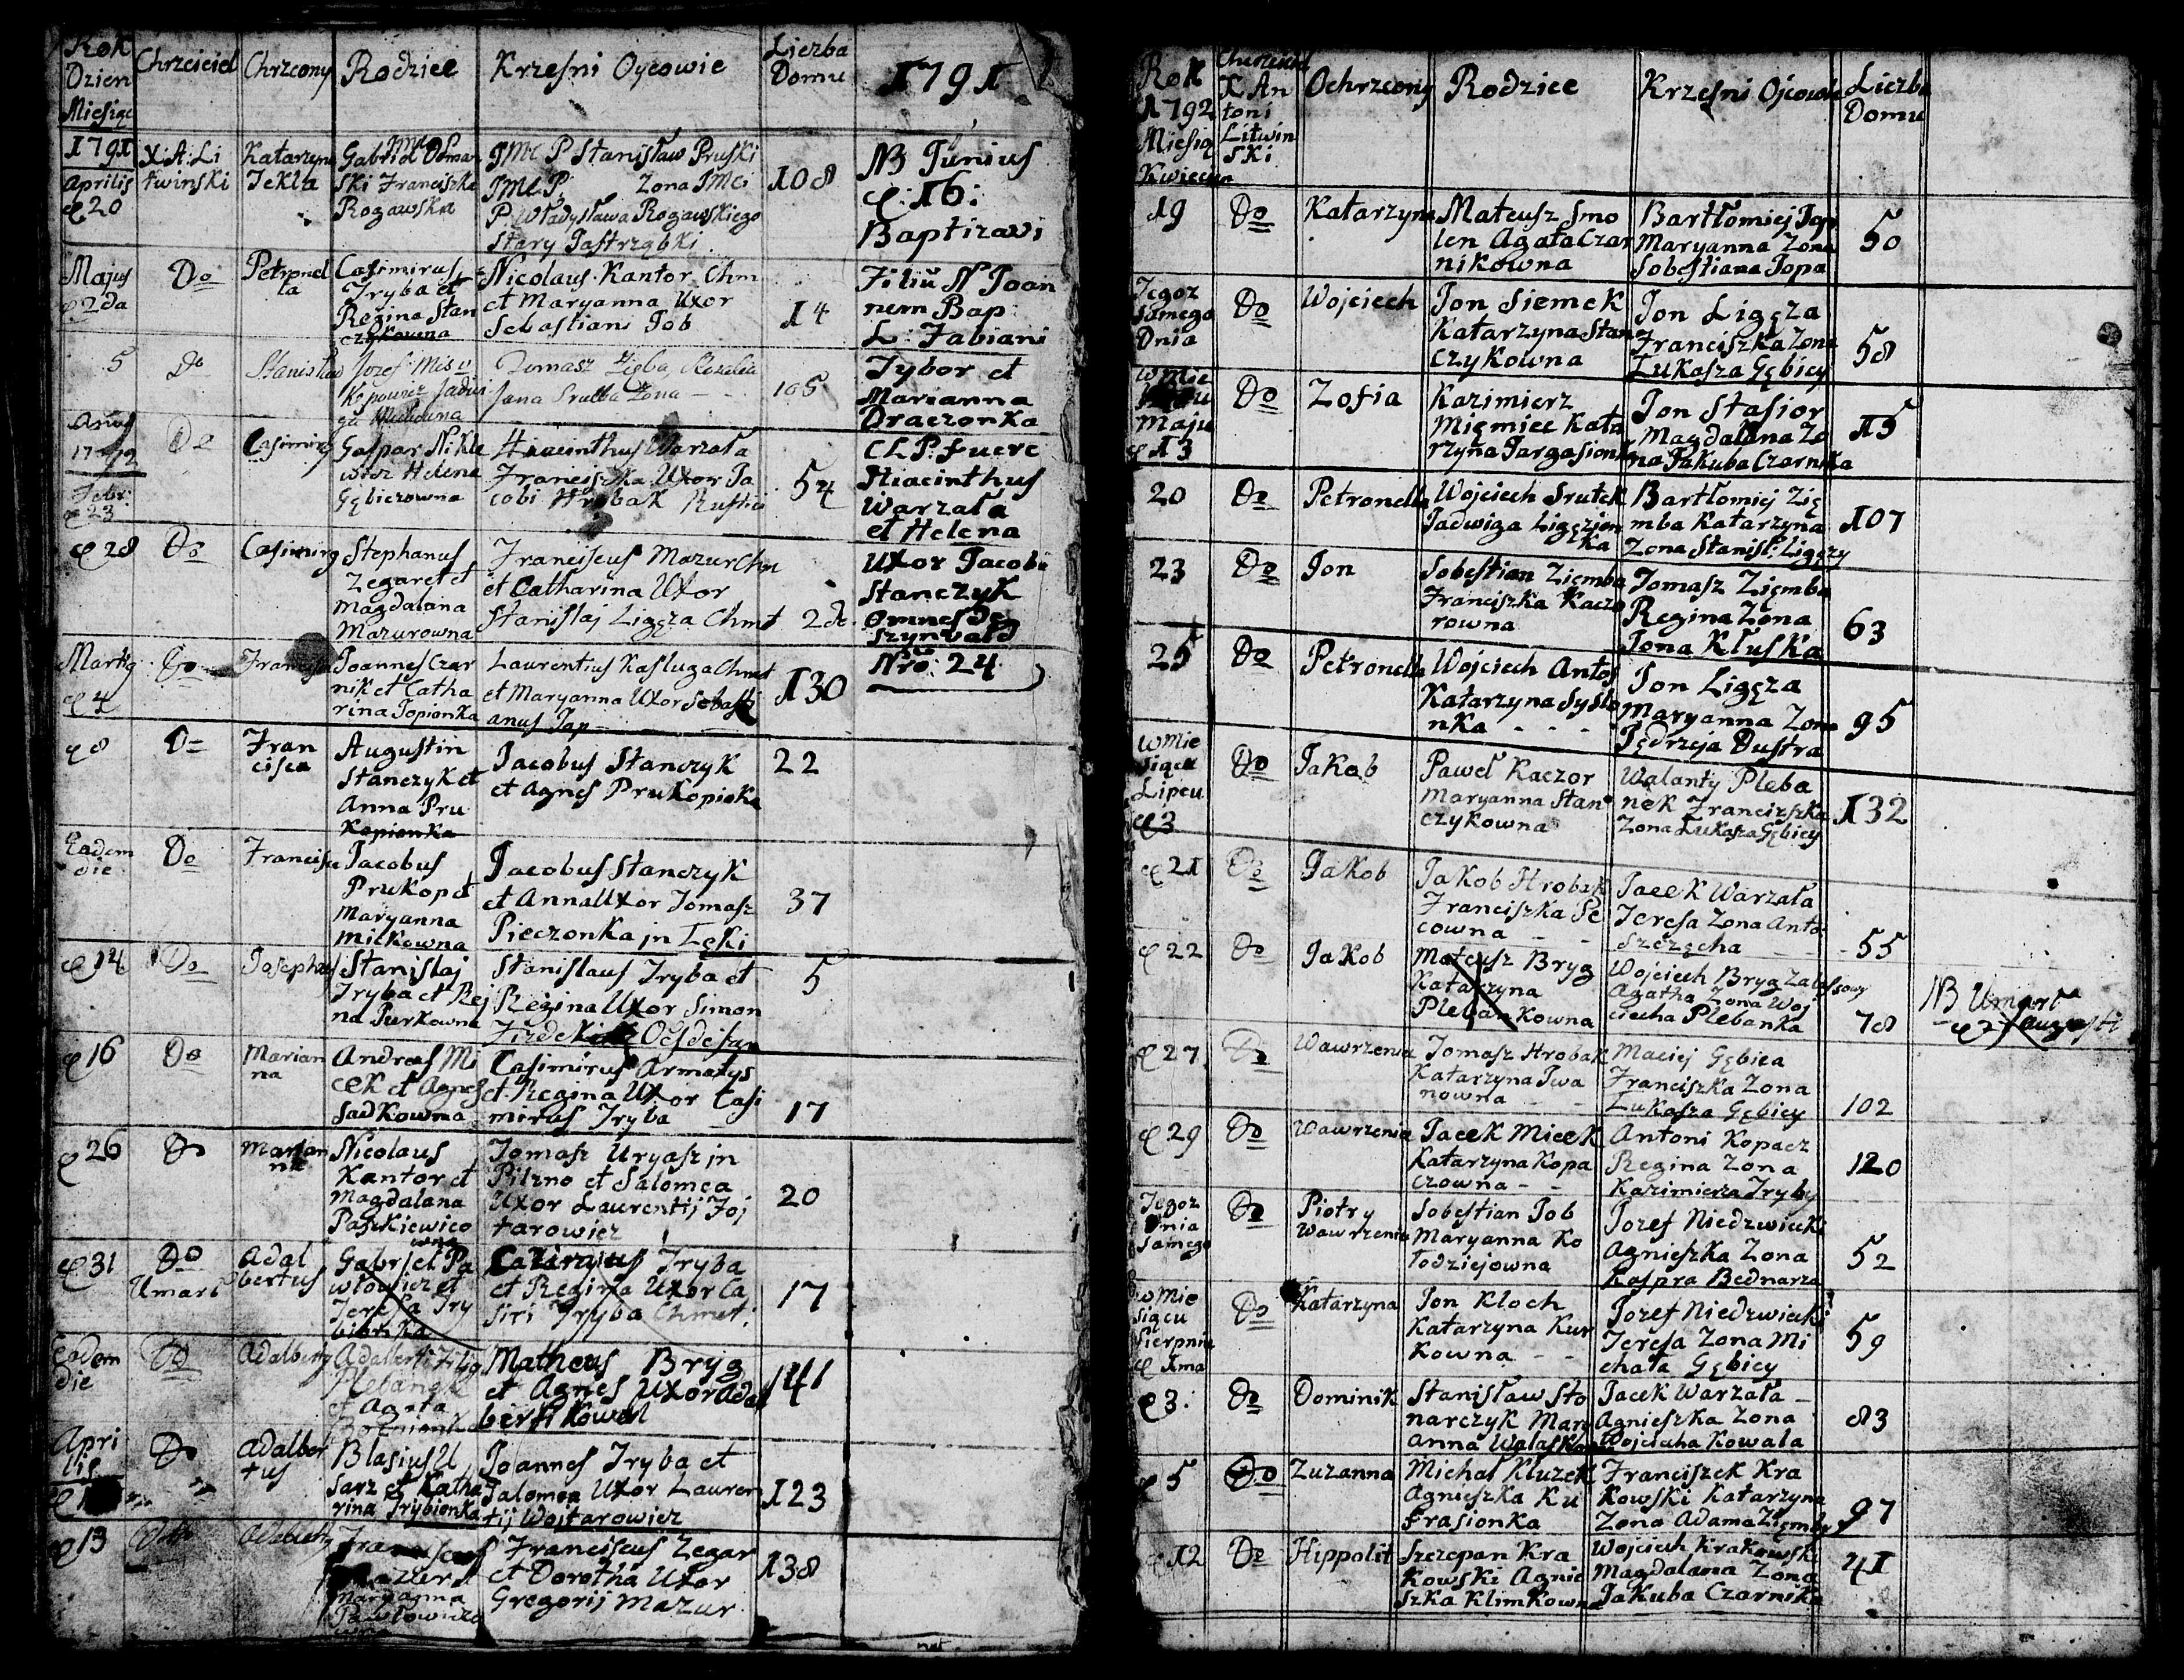 Rok Dzien Miesiąc
Chrzciciel
Chrzcony
Rodzice
Krzesni Oycowie
Liczba Domu
1791
1791 Aprilis 20
X: A: Li
twinski
Katarzyna
Tekla
Gabriel
ski Franciszka
Rogawska
JMC P Stanisław Pruski
JMC P. Zona JMci
P Władysława Rogawskiego
Stary Jastrząbki
108
NB Junius
16:
Baptizavi
Filiū N Joan
nem Bap:
L: Fabiani
Tybor et
Marianna
Draczonka
CLP: fuere
Hiacinthus
Warzała
et Helena
Uxor Jacobi
Stanczyk
Omnes de
Szynvald
Nro: 24.
Majus
2da
Do
Petronel
la
Casimirus
Tryba et
Regina Stan
czykowna
Nicolaus Kantor Chm
et Maryanna Uxor
Sebastiani Job
14
5
Do
Stanisław
Jozef
Jadwi
ga
Tomasz Zięba Rozalia
Jana Srutba Zona
105
Anno
1792
Febr:
23
Do
Casimirq
Gaspar Nikle
wicz Helena
Gębiczowna
Hiacinthus Warzała
Franciszka Uxor Ja
cobi Hrobak Rustici
54
28
Do
Casimirq
Stephanus
Zegaret et
Magdalana
Mazurowna
Franciscus Mazur Chm
et Catharina Uxor
Stanislaj Ligęza Chmt
Martij
4
Do
Joannes Czar
nik et Catha
rina Topionka
Laurentius Kasluga Chmt
et Maryanna Uxor Sebasti
anus Pap
130
8
Do
Fran
cisca
Augustin
Stanczyk et
Anna Pru
kopionka
Jacobus Stanczyk
et Agnes Prukopiska
22
Eadem
die
Do
Francisca
Jacobus
Prukop et
Maryanna
Milkowna
Jacobus Stanczyk
et Anna Uxor Tomasz
Pieczonka jn Łęki
37
14
Do
Josephus
Stanislaj
Tryba et Rej
na Jurkowna
Stanislaus Tryba et
Regina Uxor Simon
5
16
Do
Marian
na
Andreas Mi
cek et Agnes
Sadkowna
Casimirus Armatys
et Regina Uxor Casi
mirus Tryba
17
26
Do
Marian
na
Nicolaus
Kantor et
Magdalana
Paszkiewico
wna
Tomasz Uryasz jn
Pilzno et Salomea
Uxor Laurentij Foj
tarowicz
20
31
Do
Umarł
Adal
bertus
Gabrjel Pa
włowicz et
Teresa Try
bionka
Cazimirus Tryba
et Regina Uxor Ca
siri Tryba Chmet:
17
Eadem
die
Do
Adalbertq
Adalberti
Plebanek
et Agata
Matheus Bryg
et Agnes Uxor Adal
berti Kowal
141
Apri
lis
Do
Adalber
tus
Blasius U
sarz et Katha
rina Trybionka
Joannes Tryba et
Salomea Uxor Lauren
tij Wojtarowicz
123
13
Do
Adalbertq
Franciscus
Mazur et
Maryanna
Pawłowiczo
wna
Franciscus Zegar
et Dorotha Uxor
Gregorij Mazur
138
Rok
1792
Miesiąc
Kwiecień
Chrzciciel
X An
toni
Litwin
ski
Ochrzcony
Rodzice
Krzesni Ojcowie
Liczba
Domu
19
Do
Katarzyna
Mateusz Smo
len Agata Czar
nikowna
Bartłomiej Pap
Maryanna Zona
Sobestiana Papa
50
Tegoz
samego
Dnia
Do
Wojciech
Jon Siemek
Katarzyna Stan
czykowna
Jon Ligęza
Franciszka Zona
Łukasza Gębicy
58
W Mie
Maju
13
Do
Zofia
Kazimierz
Migmiec Kata
rzyna Targasionka
Jon Stasior
Magdalena Zo
na Jakuba Czarnika
115
20
Do
Petronella
Wojciech Srutek
Jadwiga Ligęzion
ka
Bartłomiej Zię
mba Katarzyna
Zona Stanisł: Ligęzy
107
23
Do
Jon
Sobestian Ziemba
Franciszka Kaczo
rowna
Tomasz Ziemba
Regina Zona
Jona Kłuska
63
25
Do
Petronella
Wojciech Antos
Katarzyna Syslo
nka
Jon Ligęza
Maryanna Zona
Jędrzeja Dustra
95
W Mie
siącu
Lipcu
3
Do
Jakob
Paweł Kaczor
Maryanna Stan
czykowna
Walanty Pleba
nek Franciszka
Zona Łukasza Gębicy
132
21
Do
Jakob
Jakob Hrobak
Franciszka Pe
cowna
Jacek Warzała
Teresa Zona Anto
Szczęcha
55
22
Do
Jakob
Mateusz Bryg
Katarzyna
Plebankowna
Wojciech Bryg Zalassowy
Agatha Zona Woj
ciecha Plebanka
78
NB Umarł
27 Augusti
27
Do
Wawrzenia
Tomasz Hrobak
Katarzyna Iwa
nowna
Maciej Gębica
Franciszka Zona
Łukasza Gębicy
102
29
Do
Wawrzenia
Jacek Micek
Katarzyna Kopa
czowna
Antoni Kopacz
Regina Zona
Kazimierza Tryby
120
Tegoz
Dnia
samego
Do
Piotry
Wawrzenia
Sobestian Job
Maryanna Ko
łodziejowna
Jozef Niedzwiecki
Agnieszka Zona
Kaspra Bednarza
52
W Mie
siącu
Sierpniu
1ma
Do
Katarzyna
Jon Kloch
Katarzyna Kur
kowna
Jozef Niedzwiecki
Teresa Zona Mi
chała Gębicy
59
3:
Do
Dominik
Stanisław Sto
narczyk Mary
anna Walaskowna
Jacek Warzała
Agnieszka Zona
Wojciecha Kowala
83
5
Do
Zuzanna
Michał Kluzek
Agnieszka Ku
frasionka
Franciszek Kra
kowski Katarzyna
Zona Adama Ziemby
97
12
Do
Hippolit
Szczepan Kra
kowski Agnie
szka Klimkowna
Wojciech Krakowski
Magdalana Zona
Jakuba Czarnika
41